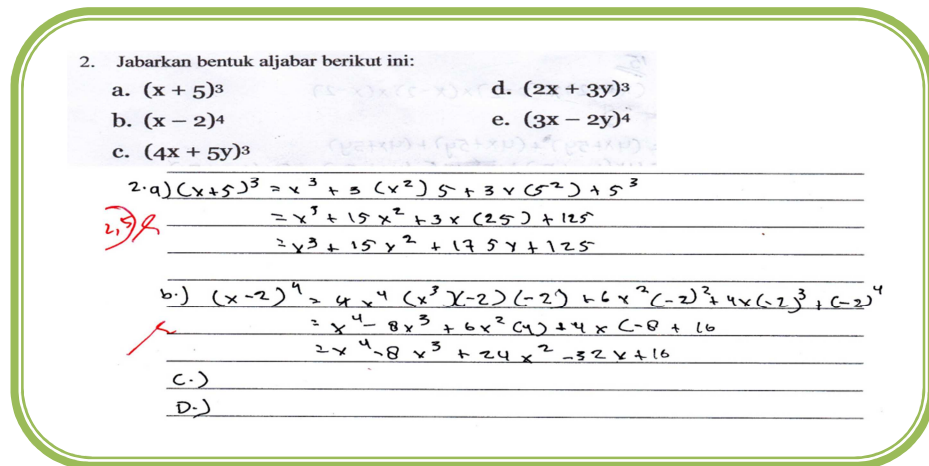 2. Jabarkan bentuk aljabar berikut ini:
a. (x + 5)³
d. (2x + 3y)³
b. (x – 2)⁴
e. (3x – 2y)⁴
c. (4x + 5y)³
2.a) (x+5)³ = x³ + 3 (x²) 5 + 3 x (5²) + 5³
= x³ + 15 x² + 3x (25) + 125
2,5
= x³ + 15 x² + 175 x + 125
b.) (x-2)⁴ = 4 x⁴ (x³)(-2) (-2) + 6 x² (-2)² + 4x (-2)³ + (-2)⁴
= x⁴ - 8x³ + 6x² (4) + 4 x (-8 + 16
= x⁴ - 8 x³ + 24 x² - 32 x + 16
C.)
D.)